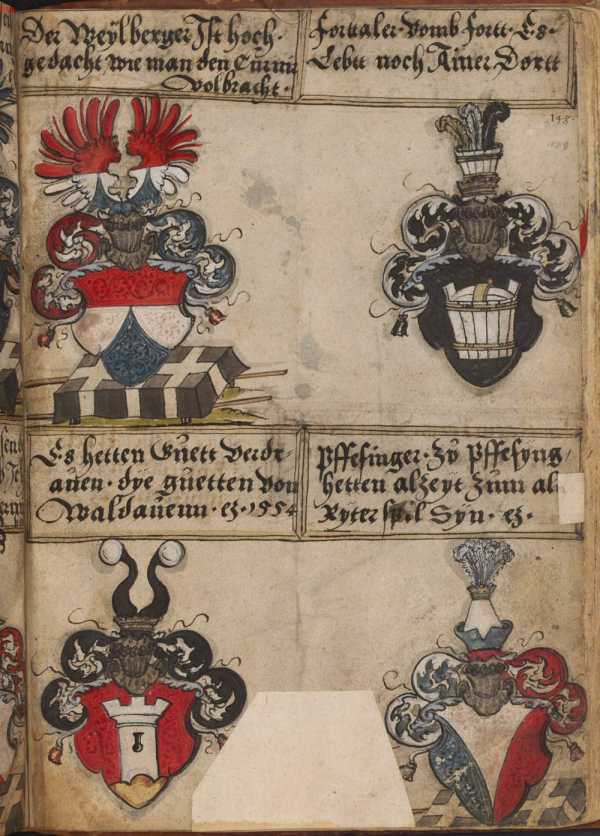 Der Weÿlberger Ist hoch·
gedacht wie man den
Volbracht·
forttaler· Vomb fortt· Es·
Lebtt noch Ainer Dortt
148·
Es hetten Guett Verdr-
auen· dÿe guetten Von
Waldauenn· ez· 1554
Pffefinger· Zů Pffefyng
hetten alzeyt Zum al
Ryter spil Syn· ez·